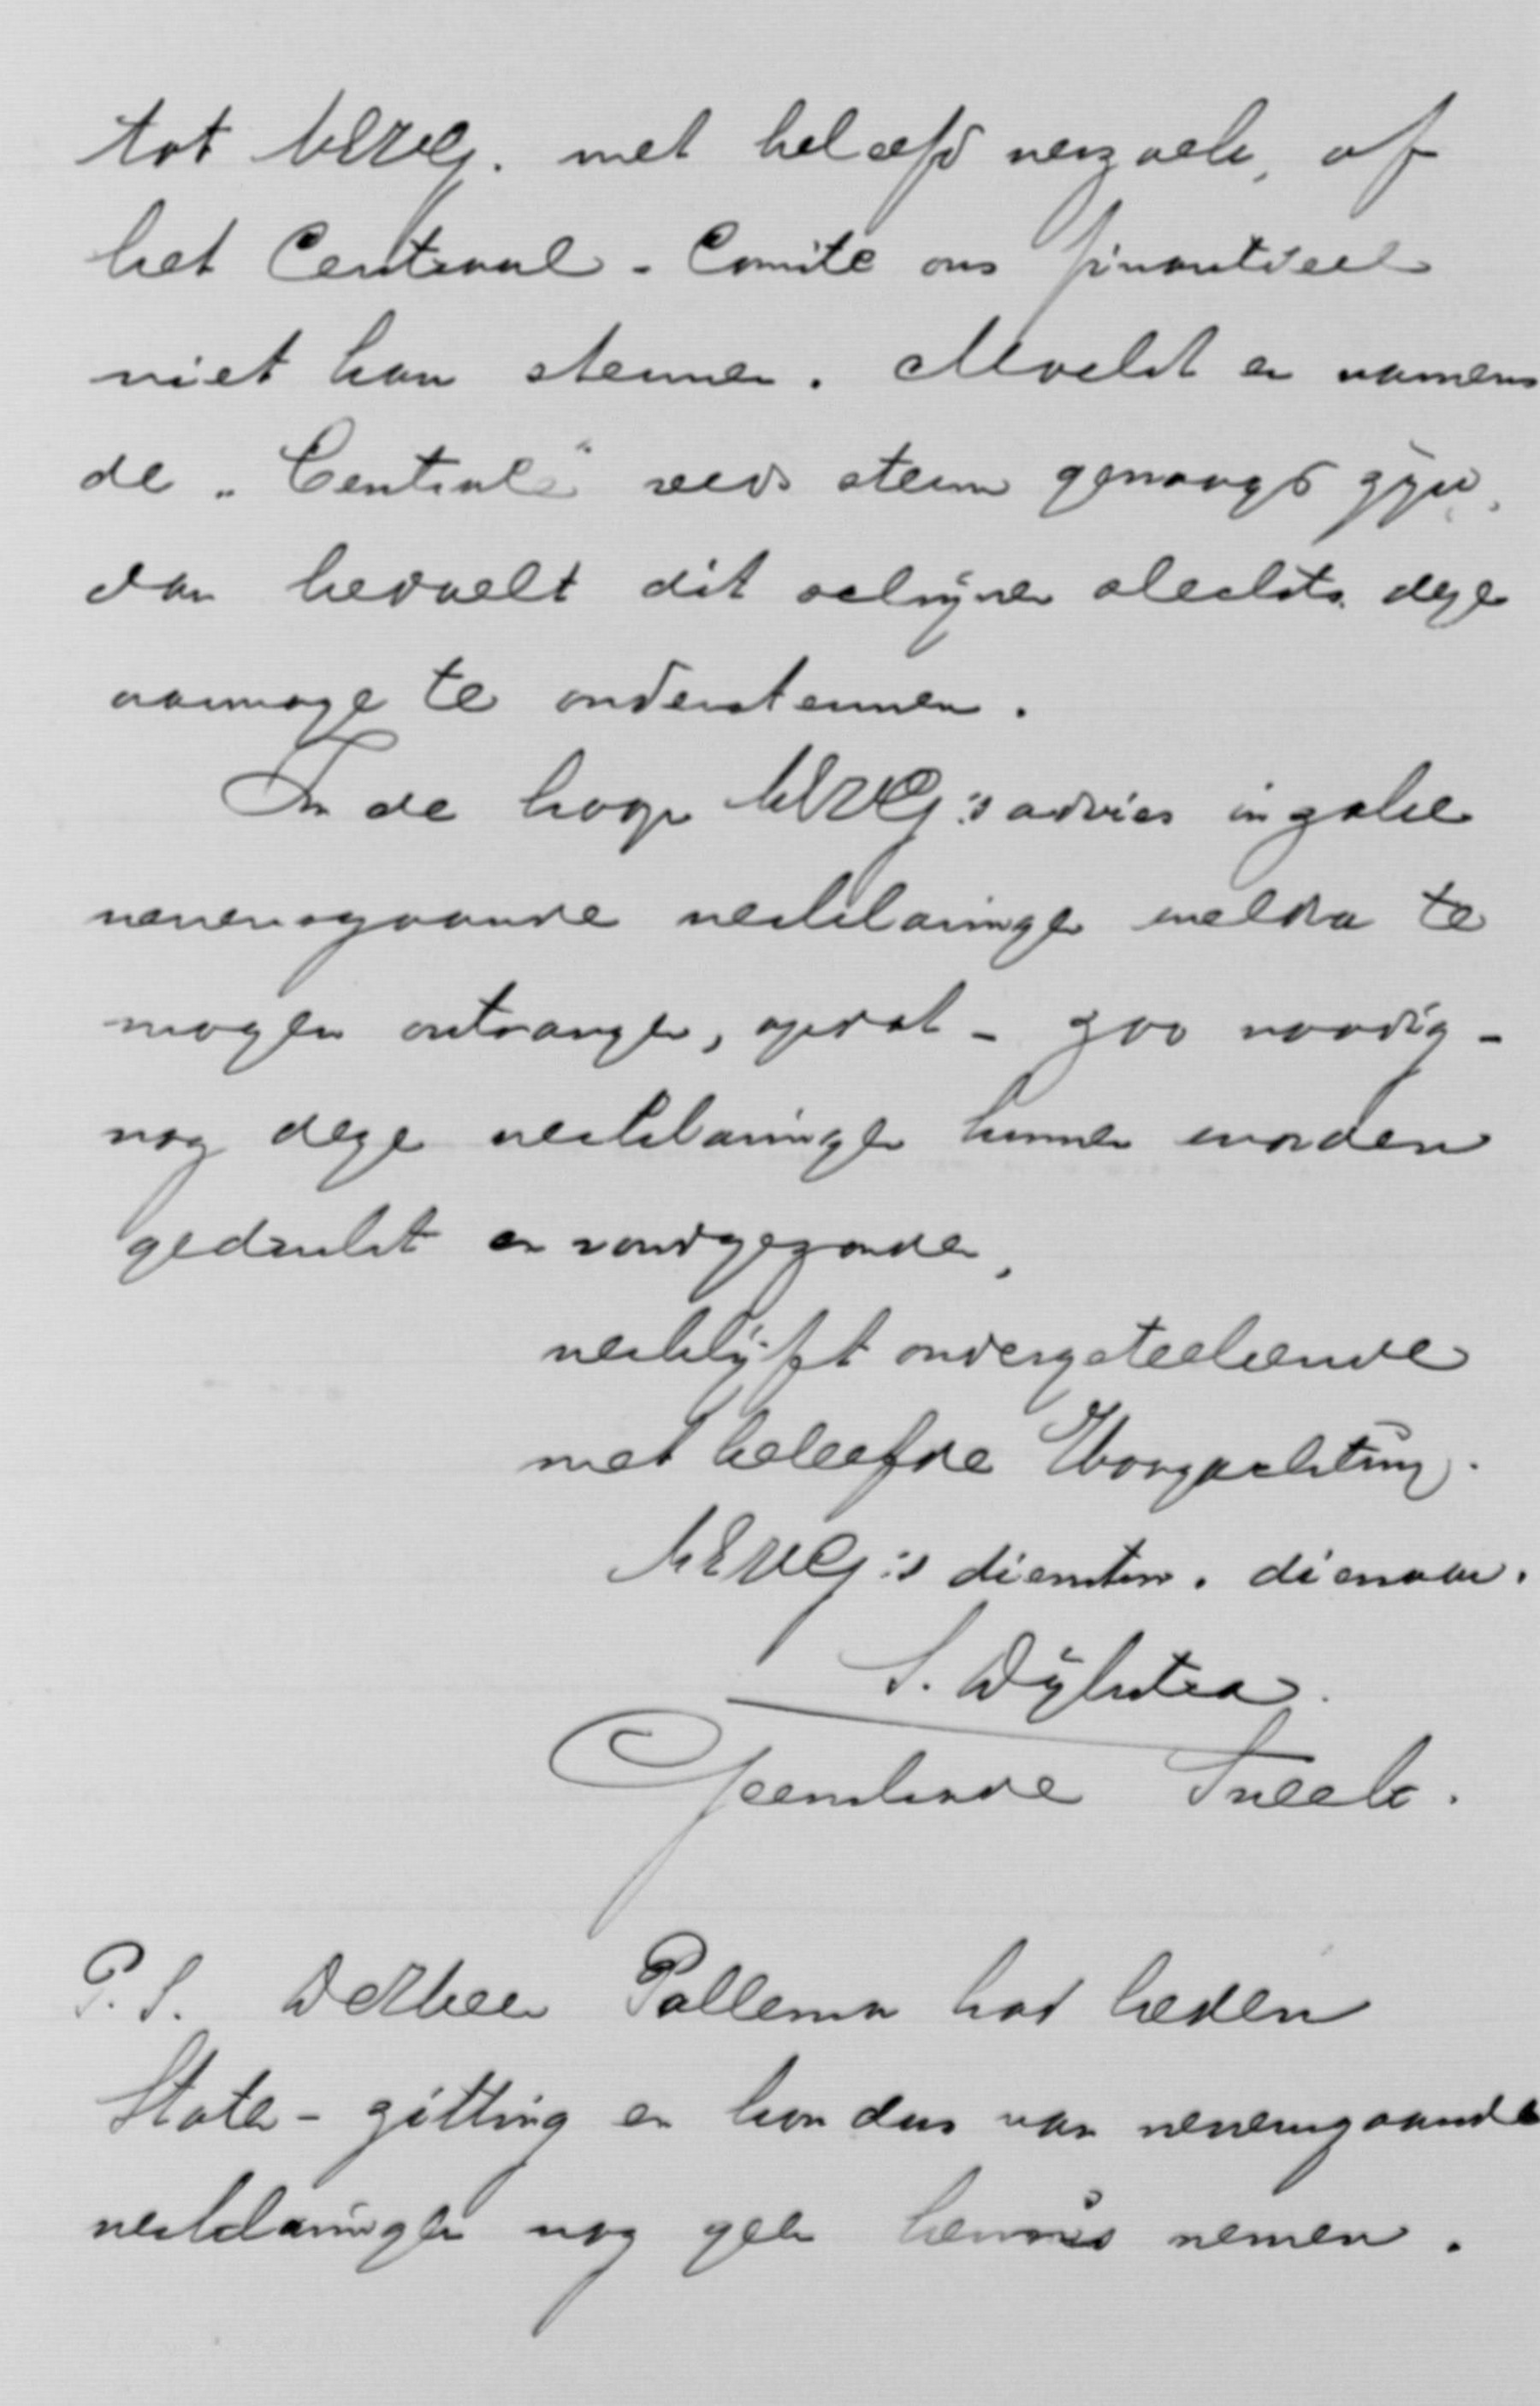 tot UEWEG. met beleefd verzoek, of
het Centraal-Comité ons financieel
niet kan steunen. Mocht er namens
de "Centrale" reeds steun gevraagd zijn,
dan bedoelt dit schrijven slechts deze
aanvrage te ondersteunen.
In de hoop UEWEG's advies inzake
nevensgaande verklaringen weldra te
mogen ontvangen, opdat - zoo noodig -
nog deze verklaringen kunnen worden
gedrukt en rondgezonden,
verblijft ondergeteekende
met beleefde Hoogachting.
UEWEG's dienstw. dienaar.
S. Dijkstra.
Geembinde Sneek.
P.S. De Heer Pollema had heden
Staten-zitting en kon dus van nevensgaande
verklaringen nog geen kennis nemen.